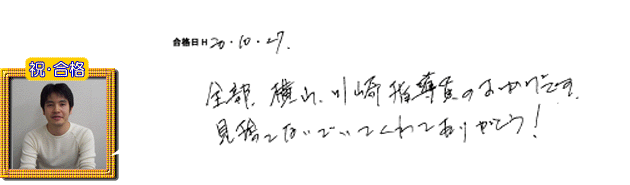 合格日H 20・10・27.
祝・合格
全部、横山、川崎指導員のおかげです。
見捨てないでいてくれてありがとう!